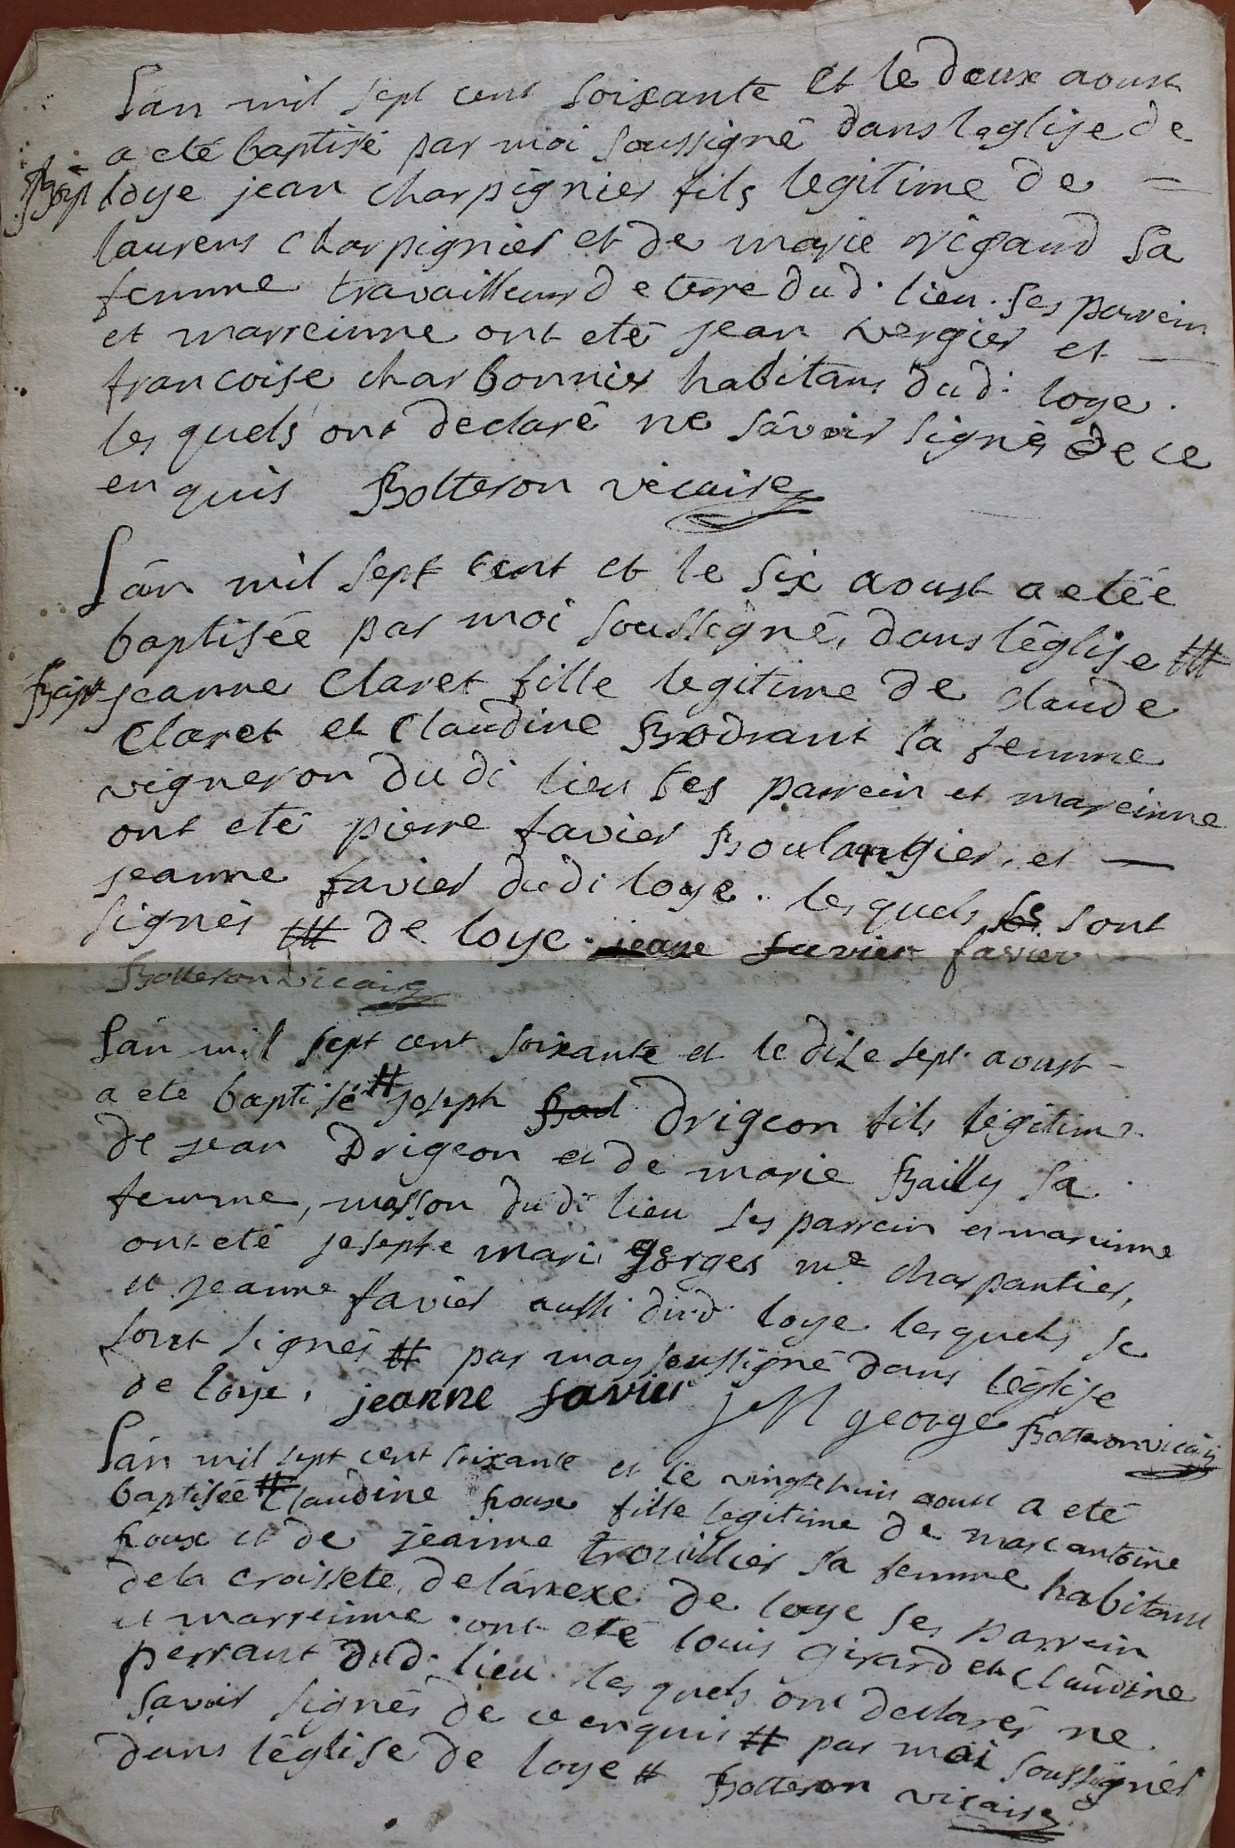 L'an mil sept cent soixante et le deux aoust
a eté baptisé par moi soussigné dans leglise de
Bapt loye jean charpignier fils legitime de —
laurens charpignier et de marie rigaud sa
femme travailleur de terre dud. lieu. ses parrein
et marreinne ont eté jean vergier et —
francoise charbonnier habitans dud. loye.
les quels ont declaré ne sávoir signér de ce
enquis Botteron vicaire
L'an mil sept cent et le six aoust a etée
baptisée par moi soussigné, dans léglise #
Bapt jeanne Claret fille legitime de claude
Claret et Claudine Brodrant sa femme
vigneron dudi lieu ses parrein et mareinne
ont eté pierre favier Boulangier, et —
jeanne favier dudi loye. lesquels se sont
signés # de loye. jeane favier favier
Botteron vicaire
L'an mil sept cent soixante et le dixe sept aoust -
a eté baptisé # joseph Bail Drigeon fils légitime
de jean Drigeon et de marie Bailly sa
femme, masson dudi lieu ses parrein et mareinne
ont eté josephe mari gorges me charpantier,
et jeanne favier aussi dud. loye lesquels se
sont signés # par moy soussigné dans léglise
de loye. jeanne favier JM george Botteron vicaire
L'an mil sept cent soixante et le vingtehuis aoust a eté
baptisée # Claudine houx fille legitime de marc antoine
houx et de jéanne trouillier sa femme habitant
dela croissete, de lánnexe de loye ses parrein
et marreinne ont eté louis girard et Claudine
perraut dud. lieu les quels ont declarés ne
savoir signés de ce enquis # par moi soussignés
dans léglise de loye # Botteron vicaire